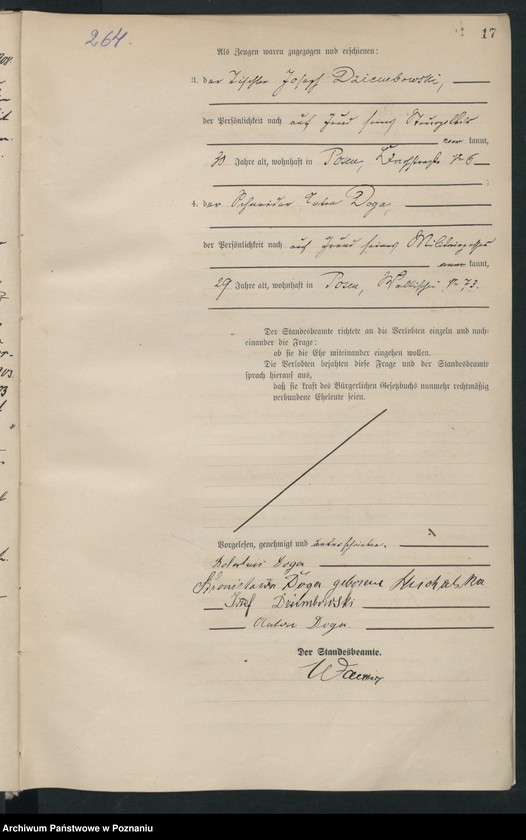 264.
17
Als Zeugen waren zugezogen und erschienen:
3. der Tischler Joseph Dziembowski,
der Persönlichkeit nach auf Grund seines
kannt,
30 Jahre alt, wohnhaft in Posen, No 6
4. der Schneider Anton Doga,
der Persönlichkeit nach auf Grund seines Militärpasses
kannt,
29 Jahre alt, wohnhaft in Posen, Wallischei No 73.
Der Standesbeamte richtete an die Verlobten einzeln und nach-
einander die Frage:
ob sie die Ehe miteinander eingehen wollen.
Die Verlobten bejahten diese Frage und der Standesbeamte
sprach hierauf aus,
daß sie kraft des Bürgerlichen Gesetzbuchs nunmehr rechtmäßig
verbundene Eheleute seien.
Vorgelesen, genehmigt und unterschrieben.
Doga
Stanisława Doga geborene
Józef Dziembowski
Anton Doga
Der Standesbeamte.
Archiwum Państwowe w Poznaniu